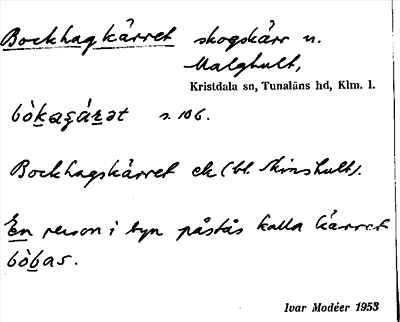 Bockhagkärret skogskärr n.
Malghult,
Kristdala sn, Tunaläns hd, Klm. l.
bòkagárət s. 106.
Bockhagskärret ek (bl. Skinshult).
En person i byn påstås kalla kärret
bòbas.
Ivar Modéer 1953